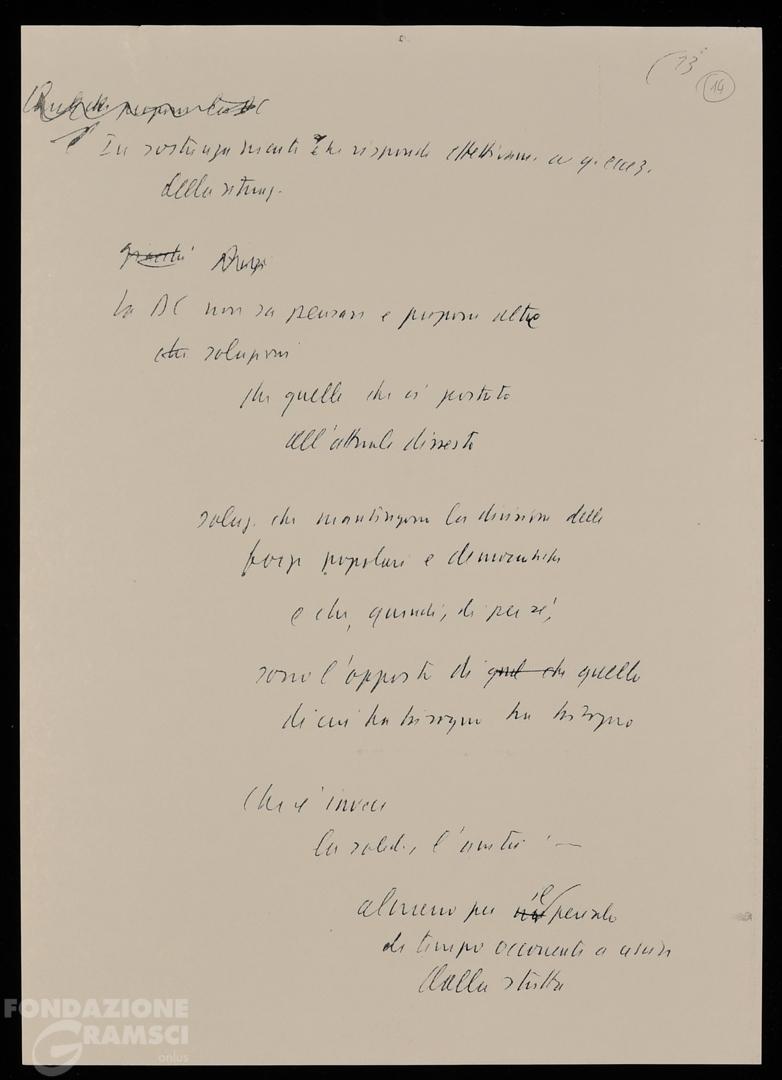 13
14
In sostanza niente che risponda effettivam. a q. esig.
della situaz.
giacché Anzi
la DC non sa pensare e proporre altre
che soluzioni
che quelle che ci portato
all'attuale dissesto
soluz. che mantengono la divisione delle
forze popolari e democratiche
e che, quindi, di per sé,
sono l'opposto di quel che quello
di cui ha bisogno ha bisogno
che è invece
la solid., l'unità —
almeno per il periodo
di tempo occorrente a uscire
dalla stretta
FONDAZIONE
GRAMSCI
onlus